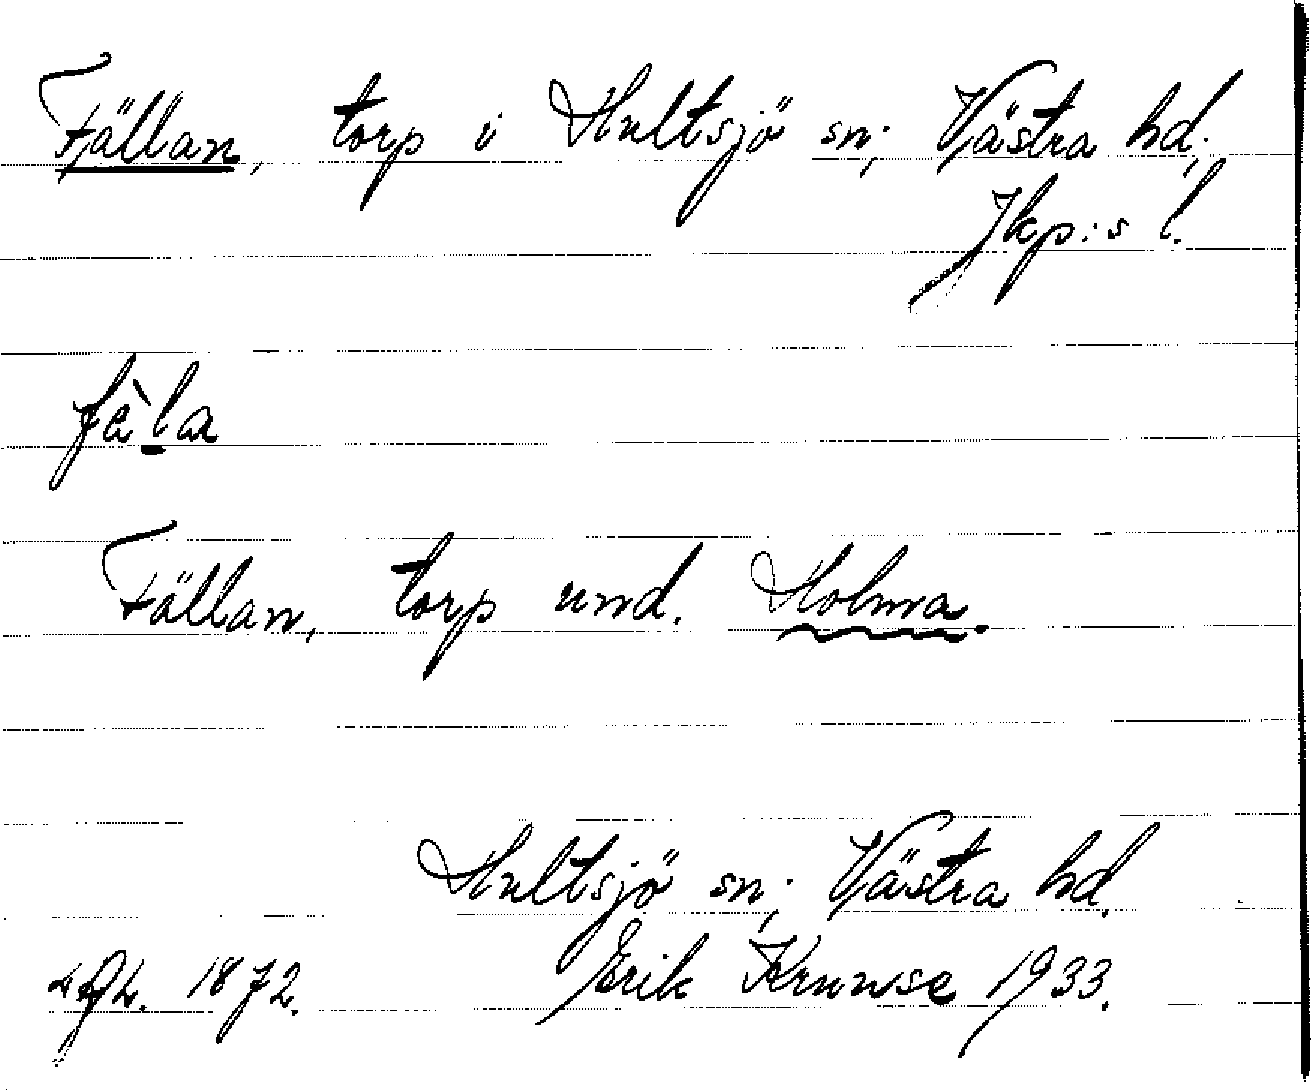 Fällan, torp i Hultsjö sn; Västra hd;
Jkp:s l.
fä̀l̠a
Fällan, torp und. Holma.
Hultsjö sn; Västra hd.
1872. Erik Kruuse 1933.